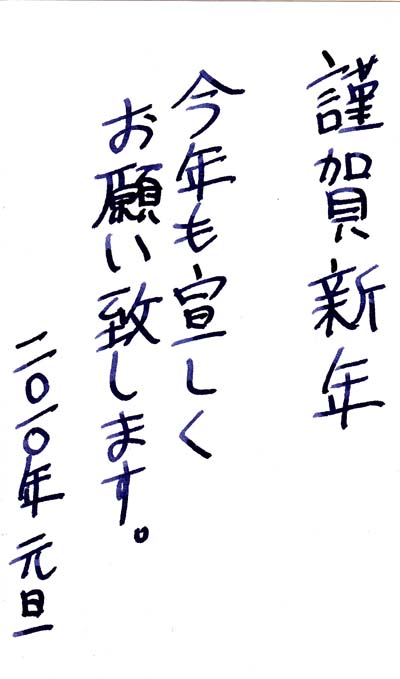 謹賀新年
今年も宜しく
お願い致します。
二〇一〇年 元旦